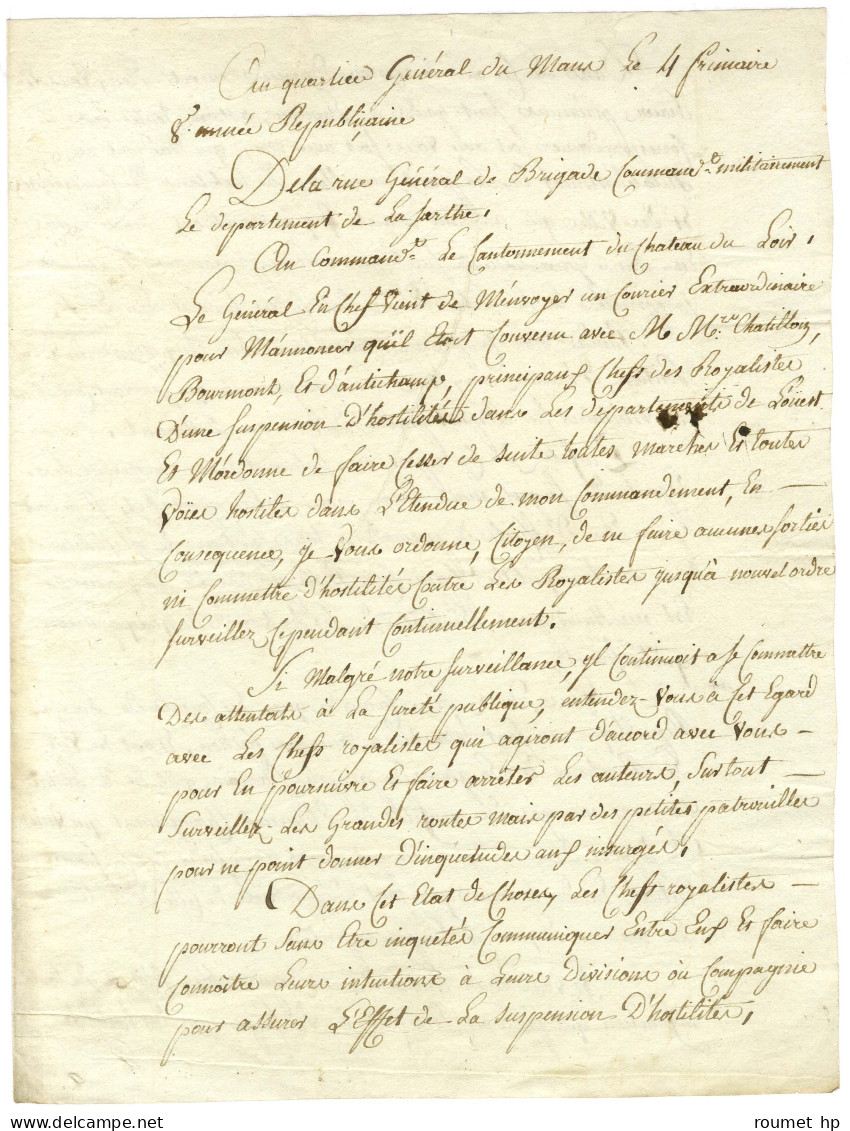 Au quartier Général du Mans Le 4 frimaire
8.e année Republicaine
Delarue Général de Brigade Command.t militairement
Le departement de La Sarthe,
Au Command.t Le Cantonnement du Chateau du Loir,
Le Général En Chef Vient de M'envoyer un Courier Extraordinaire
pour M'annoncer qu'il Etoit Convenu avec M M.rs Chatillon,
Bourmont, Et d'autichamp, principaux Chefs des Royalistes
D'une Suspension D'hostilités dans Les departements de L'oüest
Et M'ordonne de faire Cesser de suite toutes marches Et toutes
Voïes hostiles dans L'Etendue de mon Commandement, En
Consequence, je Vous ordonne, Citoyen, de ne faire aucunes sorties
ni Commettre d'hostilités Contre Les Royalistes jusqu'à nouvel ordre
surveillez Cependant Continuellement.
Si Malgré notre surveillance, yl Continuoit a se Commettre
Des attentats à La sureté publique, entendez-Vous à Cet Egard
avec Les Chefs royalistes qui agiront d'accord avec Vous -
pour En poursuivre Et faire arrêter Les auteurs, Surtout
Surveillez Les Grandes routes mais par des petites patrouilles
pour ne point donner d'inquetudes aux insurgés,
Dans Cet Etat de Choses, Les Chefs royalistes -
pourront Sans Etre inquetés Communiquer Entre Eux Et faire
Connoître Leurs intentions à Leurs Divisions où Compagnie
pour assurer L'Effet de La Suspension D'hostilités,
roumet hp